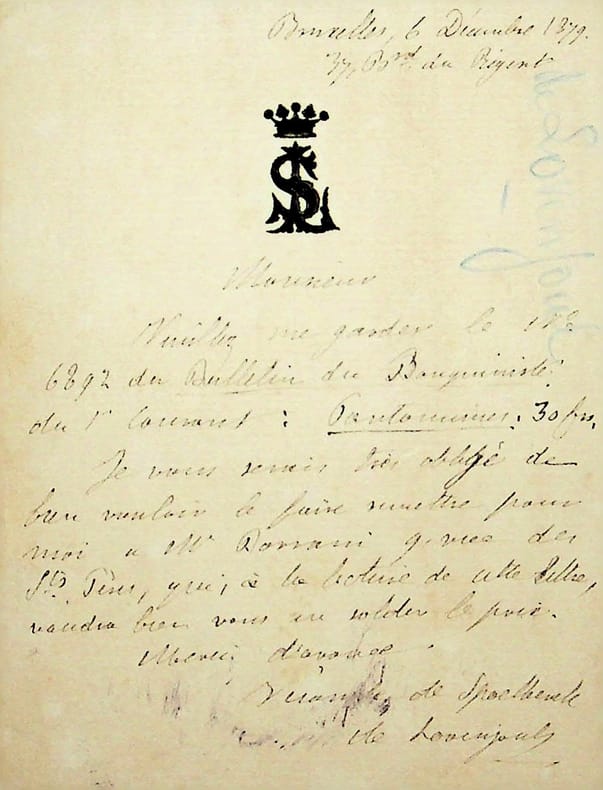 Bruxelles, 6 Décembre 1879.
37, Bd du Régent
SL
de Lovenjoul
Monsieur
Veuillez me garder le No
6892 du Bulletin du Bouquiniste
du 1r courant : Pantomimes. 30 frs.
Je vous serais très obligé de
bien vouloir le faire remettre pour
moi à Mr 9, rue des
Sts Pères, qui, à la lecture de cette lettre,
voudra bien vous en solder le prix.
Merci d'avance.
Vicomte de Spoelberch
de Lovenjoul